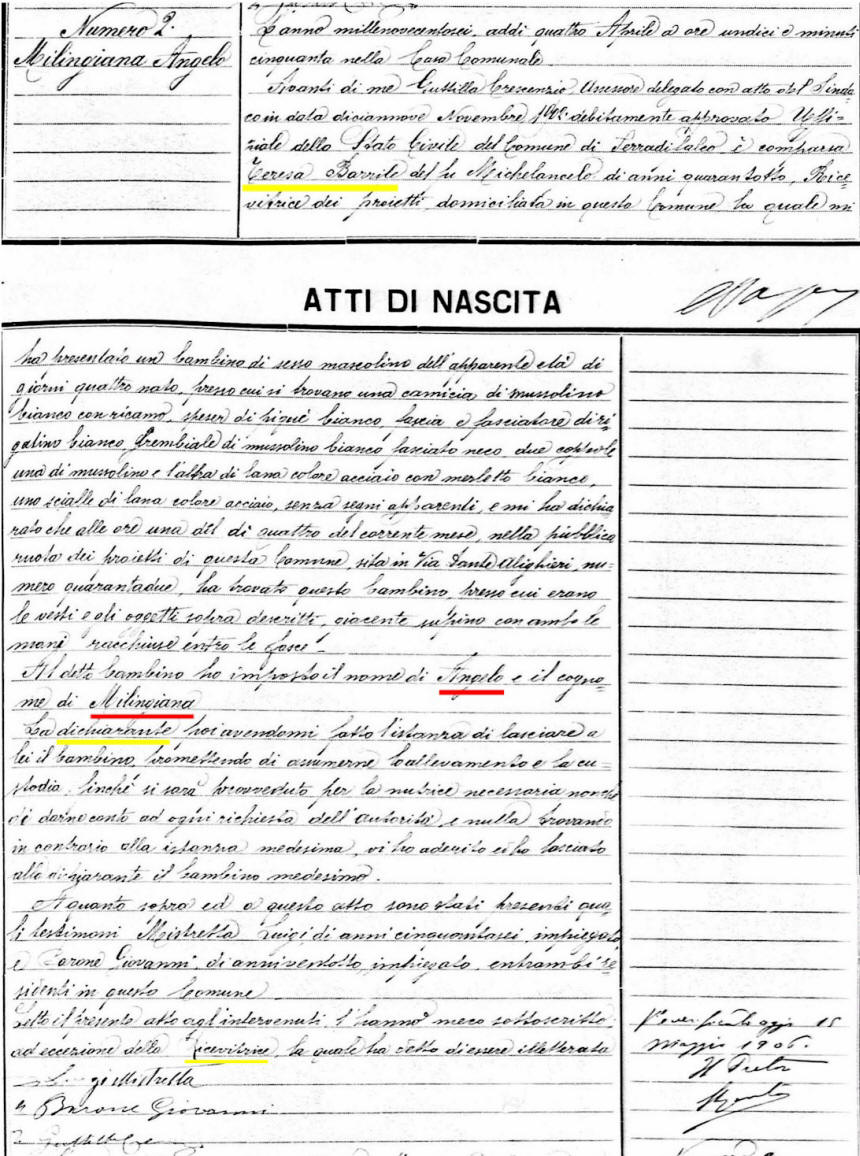 Numero 2.
Milingiana Angelo
L'anno millenovecentosei, addì quattro Aprile a ore undici e minuti
cinquanta nella Casa Comunale.
Avanti di me Guttilla Crescenzio Assessore delegato con atto del Sinda
co in data diciannove Novembre debitamente approvato Uffi=
ziale dello Stato Civile del Comune di Serradifalco è comparsa
Teresa Barrile del fu Michelangelo di anni quarantotto, Rice
vitrice dei proietti, domiciliata in questo Comune la quale mi
ATTI DI NASCITA
ha presentato un bambino di sesso mascolino dell'apparente età di
giorni quattro nato, presso cui si trovano una camicia di mussolino
bianco con ricamo, speser di piqué bianco, fascia e fasciatore di ri
gatino bianco, grembiale di mussolino bianco fasciato neco, due coppole
una di mussolino e l'altra di lana colore acciaio con merletto bianco,
uno scialle di lana colore acciaio, senza segni apparenti, e mi ha dichia
rato che alle ore una del dì quattro del corrente mese, nella pubblica
ruota dei proietti di questo Comune, sita in Via Dante Alighieri, nu=
mero quarantadue, ha trovato questo bambino, presso cui erano
le vesti e gli oggetti sopra descritti, giacente supino con ambo le
mani racchiuse entro le fasce.
Al detto bambino ho imposto il nome di Angelo e il cogno=
me di Milingiana
La dichiarante poi avendomi fatto l'istanza di lasciare a
lei il bambino, promettendo di assumerne l'allevamento e la cu=
stodia, finchè si sarà provveduto per la nutrice necessaria nonchè
di darne conto ad ogni richiesta dell'autorità, e nulla trovando
in contrario alla istanza medesima, vi ho aderito ed ho lasciato
alla dichiarante il bambino medesimo.
A quanto sopra ed a questo atto sono stati presenti qua
li testimoni Mistretta Luigi di anni cinquantasei, impiegato
e Barone Giovanni, di anni ventotto, impiegato, entrambi re
sidenti in questo Comune
Letto il presente atto agl'intervenuti, l'hanno meco sottoscritto,
ad eccezione della Ricevitrice, la quale ha detto di essere illetterata
Mistretta
Barone Giovanni
Verificato oggi 15
Maggio 1906.
Il Pretore